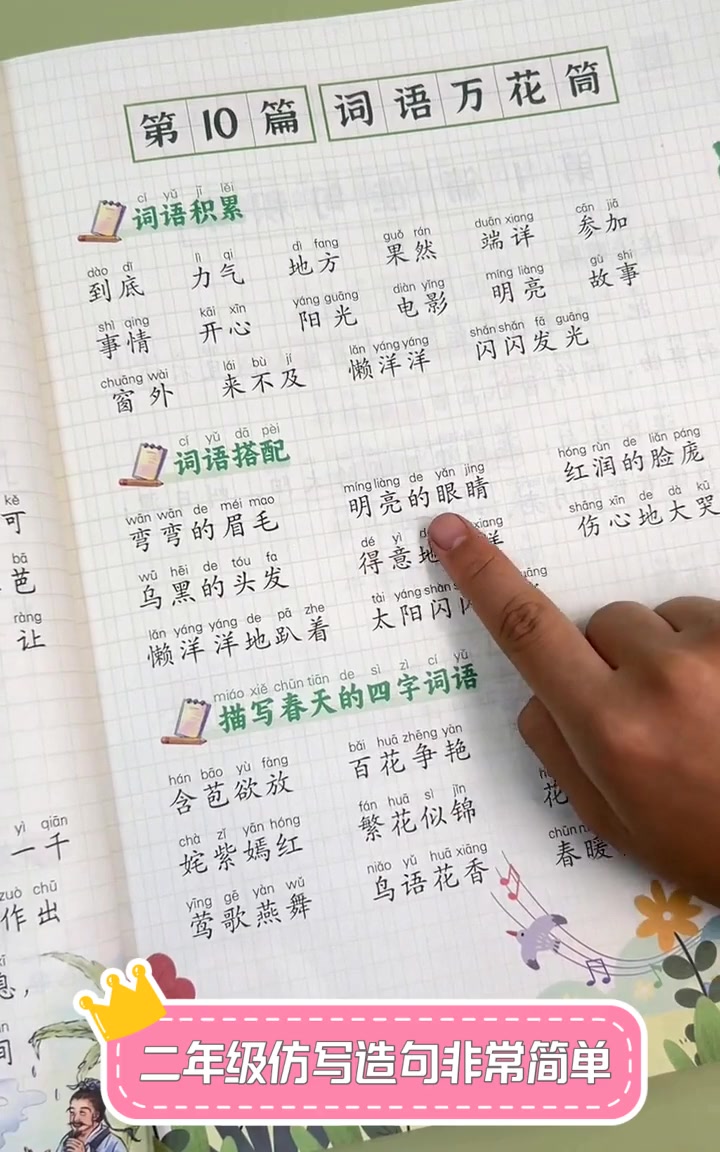 第10篇 词语万花筒
cí yǔ jī lěi
词语积累
dào dǐ lì qi dì fang guǒ rán duān xiang cān jiā
到底 力气 地方 果然 端详 参加
shì qing kāi xīn yáng guāng diàn yǐng míng liàng gù shi
事情 开心 阳光 电影 明亮 故事
chuāng wài lái bù jí lǎn yáng yáng shǎn shǎn fā guāng
窗外 来不及 懒洋洋 闪闪发光
cí yǔ dā pèi
词语搭配
wān wān de méi mao míng liàng de yǎn jing hóng rùn de liǎn páng
弯弯的眉毛 明亮的眼睛 红润的脸庞
wū hēi de tóu fa dé yì xiang shāng xīn de dà kū
乌黑的头发 得意地 伤心地大哭
lǎn yáng yáng de pā zhe tài yáng shǎn guāng
懒洋洋地趴着 太阳闪闪
miáo xiě chūn tiān de sì zì cí yǔ
描写春天的四字词语
hán bāo yù fàng bǎi huā zhēng yàn
含苞欲放 百花争艳
chà zǐ yān hóng fán huā sì jǐn
姹紫嫣红 繁花似锦 花
yīng gē yàn wǔ niǎo yǔ huā xiāng chūn
莺歌燕舞 鸟语花香 春暖
kě
可
bā
芭
ràng
让
yì qiān
一千
zuò chū
作出
息，
间
二年级仿写造句非常简单